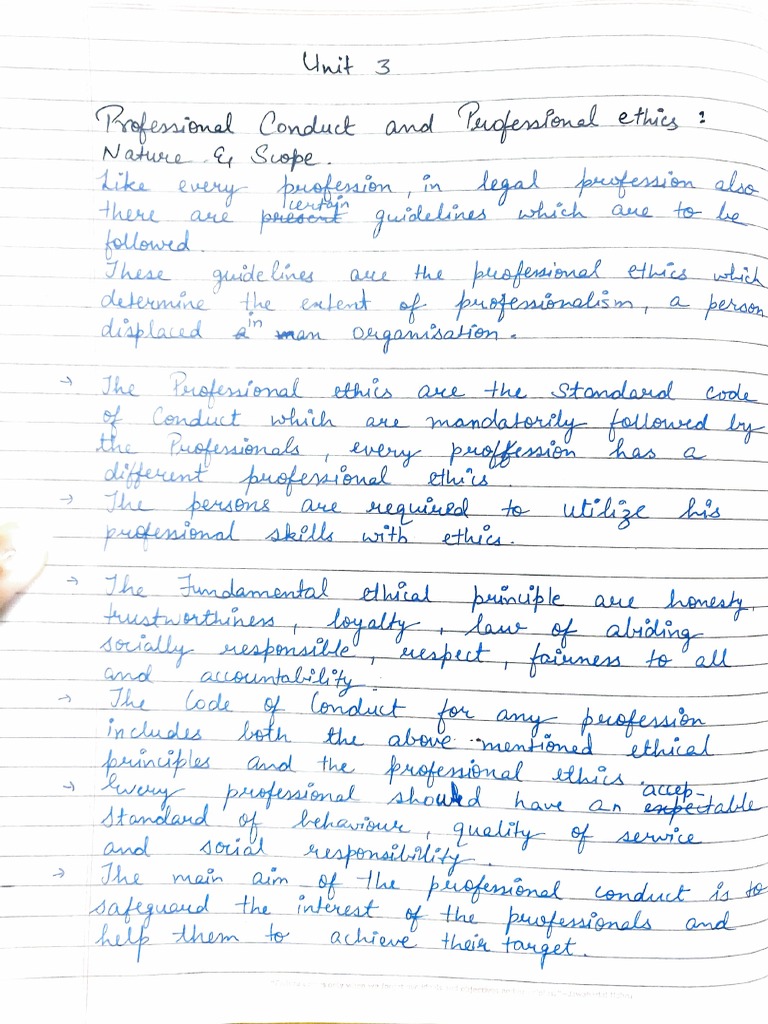 Unit 3
Professional Conduct and Professional ethics :
Nature & Scope.
Like every profession, in legal profession also
there are certain guidelines which are to be
followed.
These guidelines are the professional ethics which
determine the extent of professionalism, a person
displaced in an organisation.
→ The Professional ethics are the Standard code
of Conduct which are mandatorily followed by
the Professionals, every proffession has a
different professional ethics.
→ The persons are required to utilize his
professional skills with ethics.
→ The Fundamental ethical principle are honesty,
trustworthiness, loyalty, law of abiding
socially responsible, respect, fairness to all
and accountability.
→ The Code of Conduct for any profession
includes both the above mentioned ethical
principles and the professional ethics.
→ Every professional should have an acceptable
standard of behaviour, quality of service
and social responsibility.
→ The main aim of the professional conduct is to
safeguard the interest of the professionals and
help them to achieve their target.